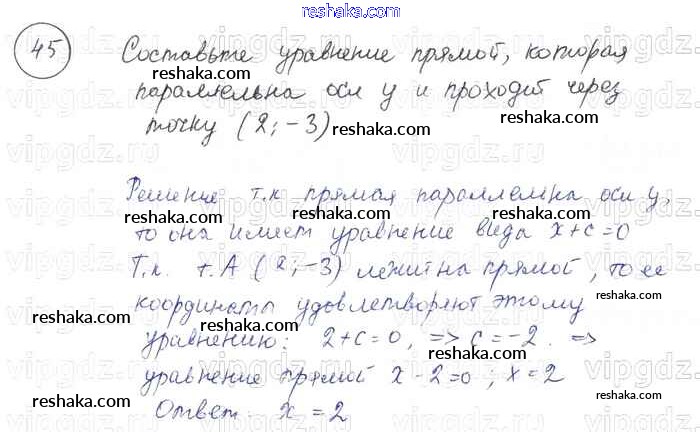 reshaka.com
45 Составьте уравнение прямой, которая
reshaka.com reshaka.com
параллельна оси y и проходит через
точку (2; -3) reshaka.com
Решение т.к прямая параллельна оси y,
reshaka.com reshaka.com
то она имеет уравнение вида x+c=0
Т.к. т.А (2;-3) лежит на прямой, то ее
reshaka.com reshaka.com
координаты удовлетворяют этому
уравнению: 2+c=0, => c=-2. =>
reshaka.com reshaka.com
уравнение прямой x-2=0; x=2
Ответ. x = 2
reshaka.com reshaka.com